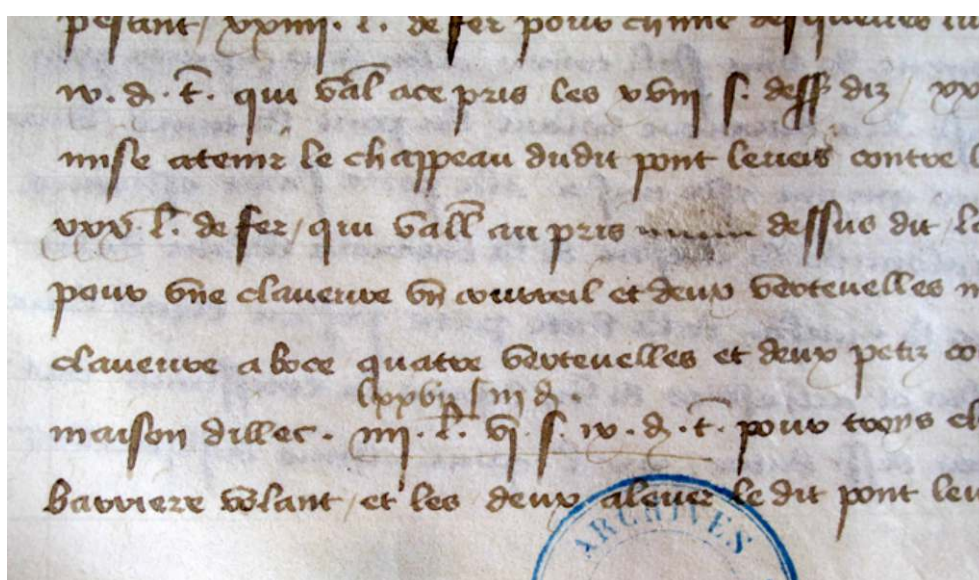 pesant / xxiiii. l. de fer pour chune desquelles
iv. d. t. qui val ace pris les xviii s. dess diz / xx
mise atenir le chappeau dudit pont leveis contre l
xxxv. l. de fer / qui vall au pris dessus dit /
pour une claveure un courreil et deux vertevelles
claveure a boce quatre vertevelles et deux petiz co
lxxvi s. iii d.
maison dillec. iiii. l. vi. s. iv. d. t. pour troys
barriere volant / et les deux alever le dit pont lev
ARCHIVES